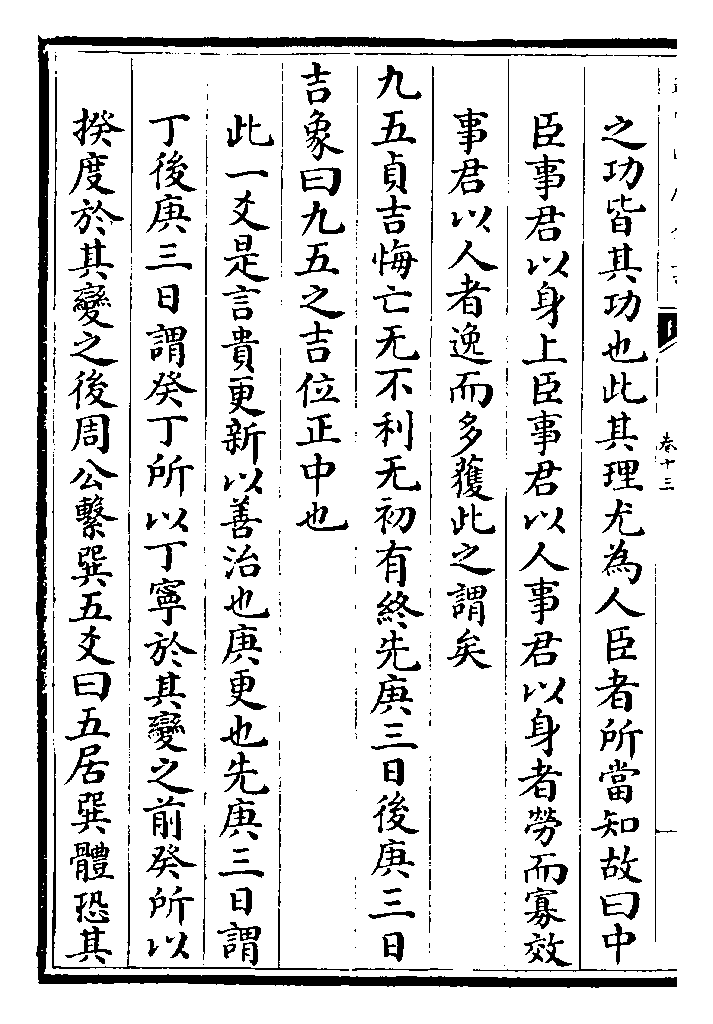 之功皆其功也此其理尤為人臣者所當知故曰中
臣事君以身上臣事君以人事君以身者勞而寡效
事君以人者逸而多獲此之謂矣
九五貞吉悔亡无不利无初有終先庚三日後庚三日
吉象曰九五之吉位正中也
此一爻是言貴更新以善治也庚更也先庚三日謂
丁後庚三日謂癸丁所以丁寧於其變之前癸所以
揆度於其變之後周公繫巽五爻曰五居巽體恐其
卷十三